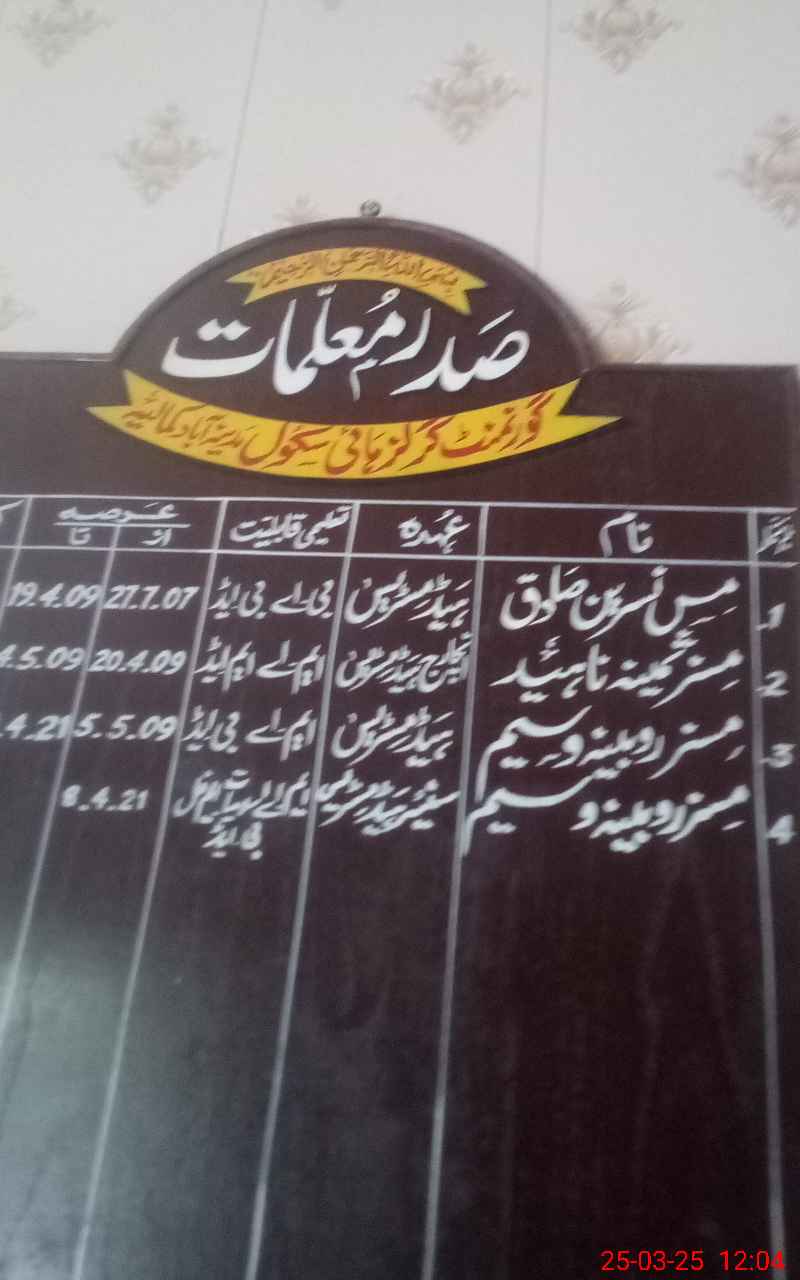 بسم اللہ الرحمن الرحیم
صدر معلمات
گورنمنٹ گرلز ہائی سکول مدینہ آباد کمالیہ
نمبر نام عہدہ تعلیمی قابلیت عرصہ
از تا
1. مس نسرین صادق ہیڈمسٹریس بی اے بی ایڈ 27.7.07 19.4.09
2. مسز ثمینہ ناہید انچارج ہیڈمسٹریس ایم اے ایم ایڈ 20.4.09 4.5.09
3. مسز روبینہ وسیم ہیڈمسٹریس ایم اے بی ایڈ 5.5.09 .4.21
4. مسز روبینہ وسیم سنیئر ہیڈمسٹریس ایم اے 8.4.21
بی ایڈ
25-03-25 12:04